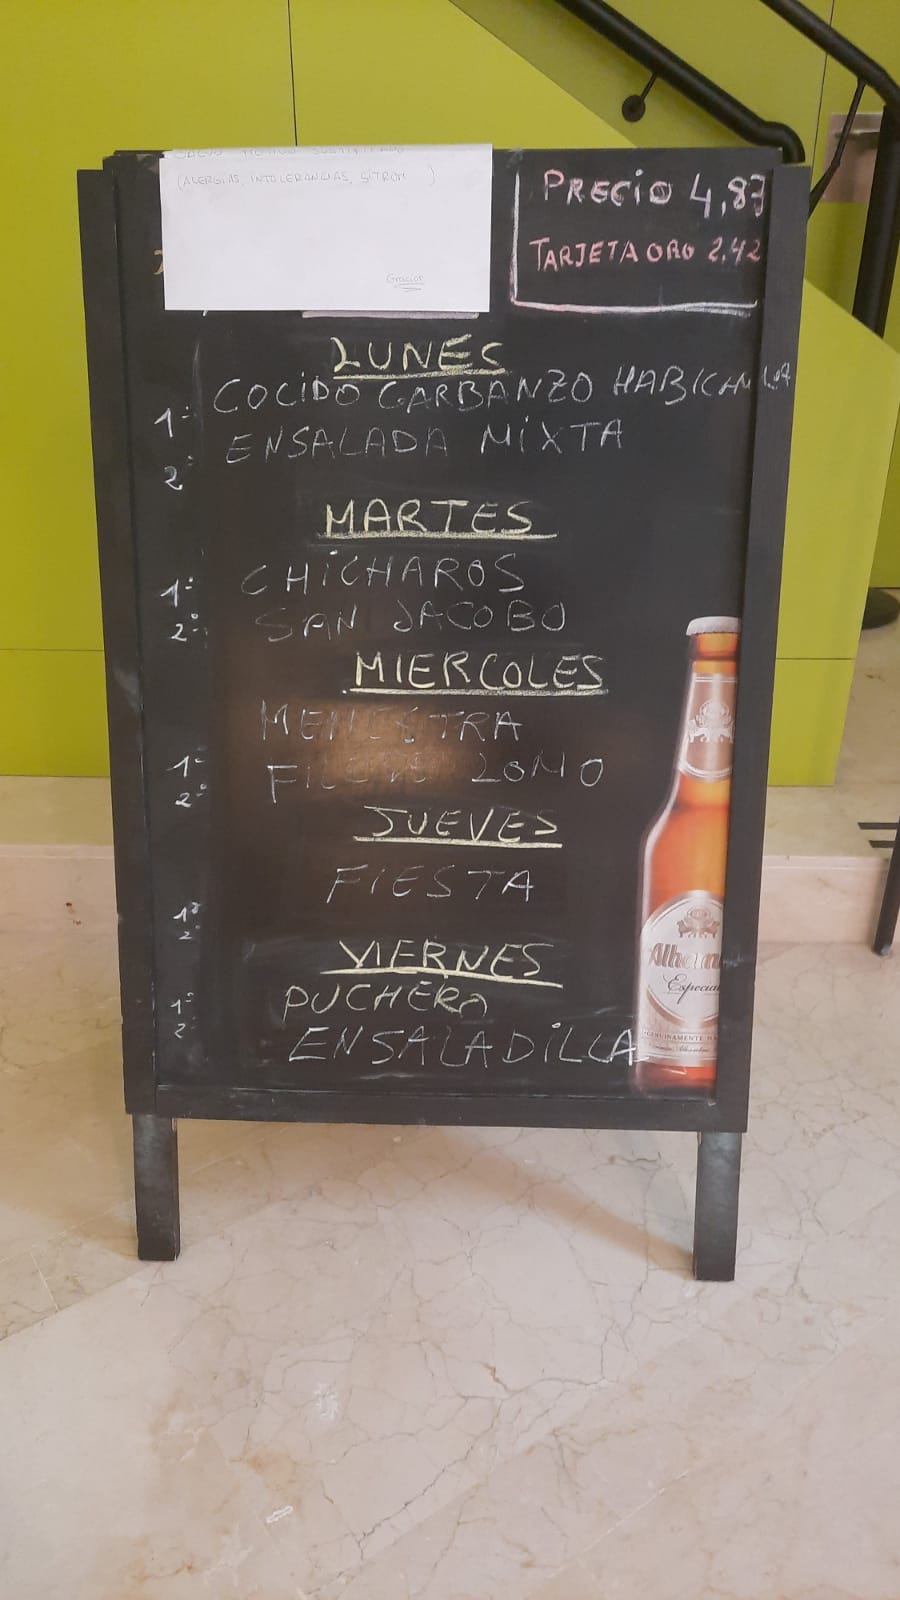 (ALERGIAS, INTOLERANCIAS, SITROM )
Gracias
PRECIO 4,87
TARJETA ORO 2,42
LUNES
1º COCIDO GARBANZO HABICHUELA
2º ENSALADA MIXTA
MARTES
1º CHICHAROS
2º SAN JACOBO
MIERCOLES
1º MENESTRA
2º FILETE LOMO
JUEVES
FIESTA
1º
2º
VIERNES
1º PUCHERO
2º ENSALADILLA
Alham
Especial
GENUINAMENTE